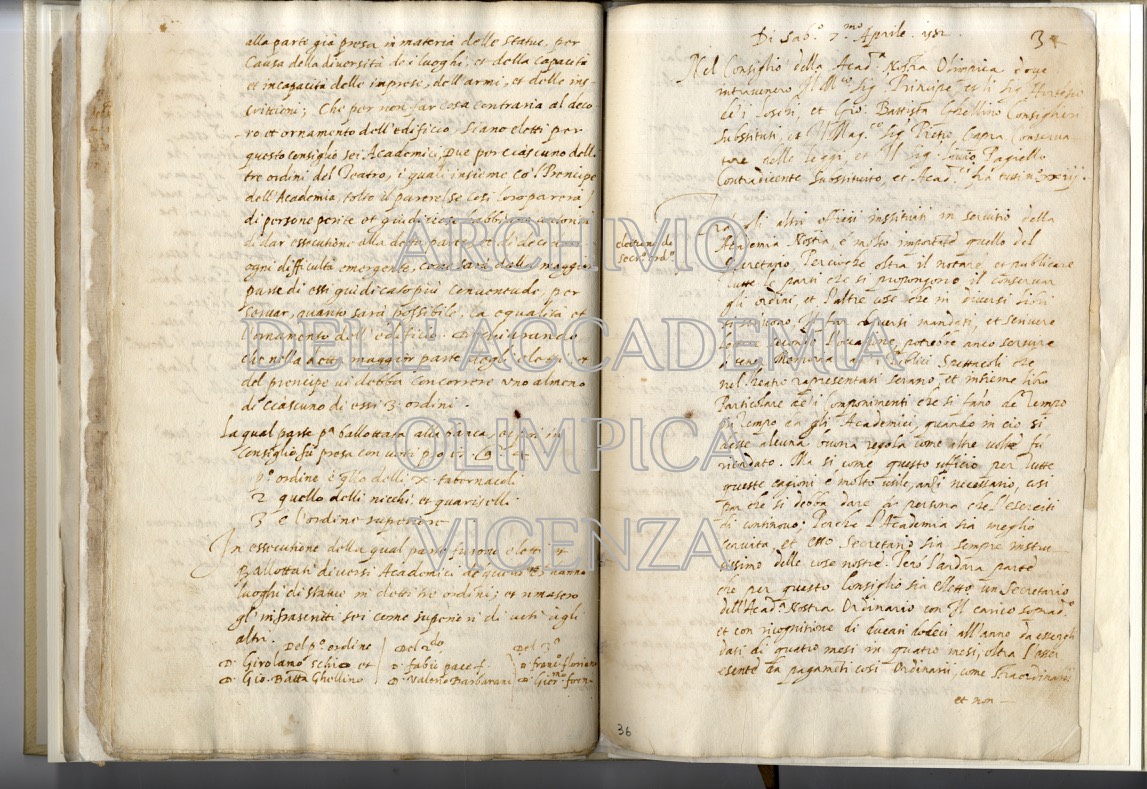 alla parte già presa in materia delle statue, per
causa della diversità de i luoghi, et della capacità
et incapacità delle imprese, dell'armi, et delle ins-
crittioni; Che per non far cosa contraria al deco
ro et ornamento dell'edificio, siano eletti per
questo consiglio sei Academici, due per ciascuno delli
tre ordini del Teatro, i quali insieme co'l Prencipe
dell'Academia, tolto il parere se così loro parerà
di persone perite et giudiciose habbiano
di dar essecutione alla detta parte, et di decider
ogni difficultà emergente, come sarà dalla maggior
parte di essi giudicato più conveniente, per
servar, quanto sarà possibile, la egualità et
l'ornamento dell'edificio. Dechiarando
che nella detta maggior parte degli eletti, et
del prencipe vi debba concorrere uno almeno
de ciascuno di essi 3 ordini.
La qual parte pª ballottata alla banca, et poi in
Consiglio fu presa con voti pro 19
pº ordine è q̃llo delli X tabernacoli
2 quello delli nicchi et quariselli
3 è l'ordine superiore
In essecutione della qual parte furono eletti et
Ballottati diversi Academici de quelli che hanno
luoghi di statue in detti tre ordini; et rimasero
gl'infrascritti sei come superiori di voti agli
altri.
Del pº ordine Del 2do Del 3º
D. Girolamo schio et D. fabio pace f. D. franc.º floriano
D. Gio. Batta Ghellino D. Valerio Barbarano D. Gier.mo forni
3
Di Sab.º 7mo Aprile 1582.
Nel Consiglio della Acad.ª Nostra Olimpica dove
intravenero Il Mco Sig. Principe, et li Sig. Hortensio
de i Loschi, et Gio: Battista Ghellino Consiglieri
sustituti, et Il Mag.co Sig. Pietro Capra Conserva
tore delle leggi, et Il Sig. Livio Pagiello
Contradicente sustituito, et Acad.ci fra tutti nº xxiij.
elettione de
secr.º ord.º
Tra gli altri officii instituti in servitio della
Academia Nostra è molto importante quello del
secretario, Percioche oltra il notare, et publicare
tutte le parti che si propongono, il conservar
gli ordini, et l'altre cose che in diversi libri
si scrivono, il far diversi mandati, et scrivere
secondo l'occasione, potrebbe anco servare
memoria publici Spettacoli che
nel Theatro rapresentati serano, et insieme libro
Particolare de i componimenti che si fano de tempo
in tempo da gli Academici, quando in ciò si
deve alcuna buona regola come altre volte fu
ricordato. Ma si come questo ufficio per tutte
queste cagioni è molto utile, anzi necessario, così
par che si debba dare à persona che l'eserciti
di continovo; Perche l'Academia sia meglio
servita, et esso Secretario sia sempre instrut-
tissimo delle cose nostre. Però l'andarà parte
che per questo Consiglio sia eletto un Secretario
dell'Acad.ª Nostra Ordinario con Il carico sopradº
et con ricognitione di ducati dodeci all'anno da esserli
dati di quatro mesi in quatro mesi, oltra l'esser
esente da pagamēti così Ordinarii, come straordinarii
et non
36
ARCHIVIO
DELL'ACCADEMIA
OLIMPICA
VICENZA